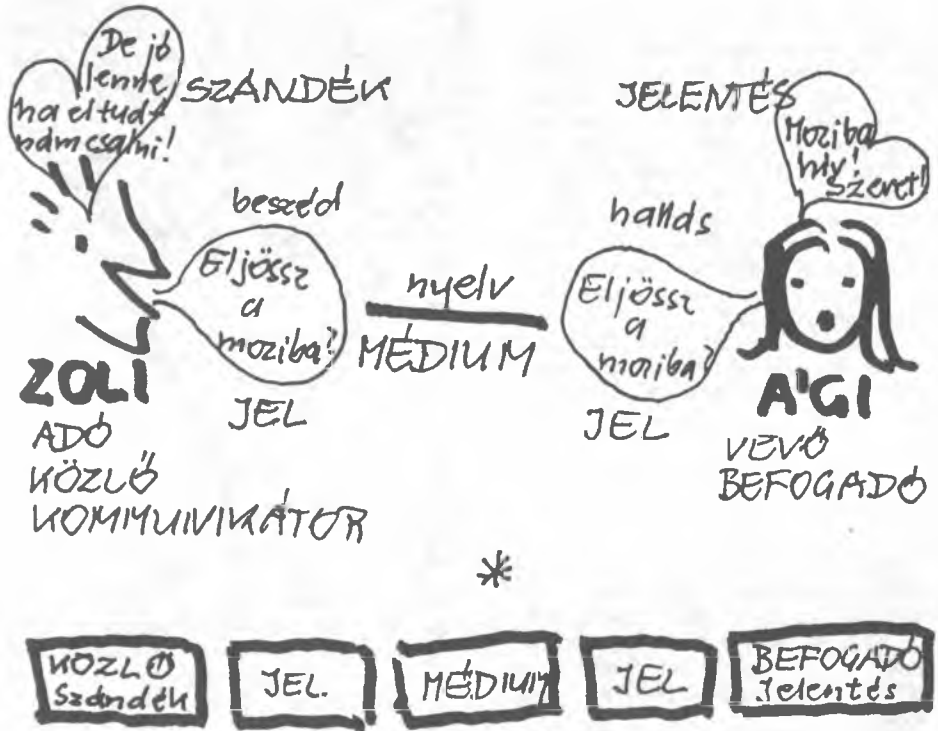 De jó
lenne,
ha el tud-
nám csalni!
SZÁNDÉK
JELENTÉS
Moziba
hív!
Szeret!
beszéd
hallás
Eljössz
a
moziba?
nyelv
MÉDIUM
Eljössz
a
moziba?
JEL
JEL
ZOLI
ADÓ
KÖZLŐ
KOMMUNIKÁTOR
ÁGI
VEVŐ
BEFOGADÓ
*
KÖZLŐ
Szándék
JEL.
MÉDIUM
JEL
BEFOGADÓ
Jelentés